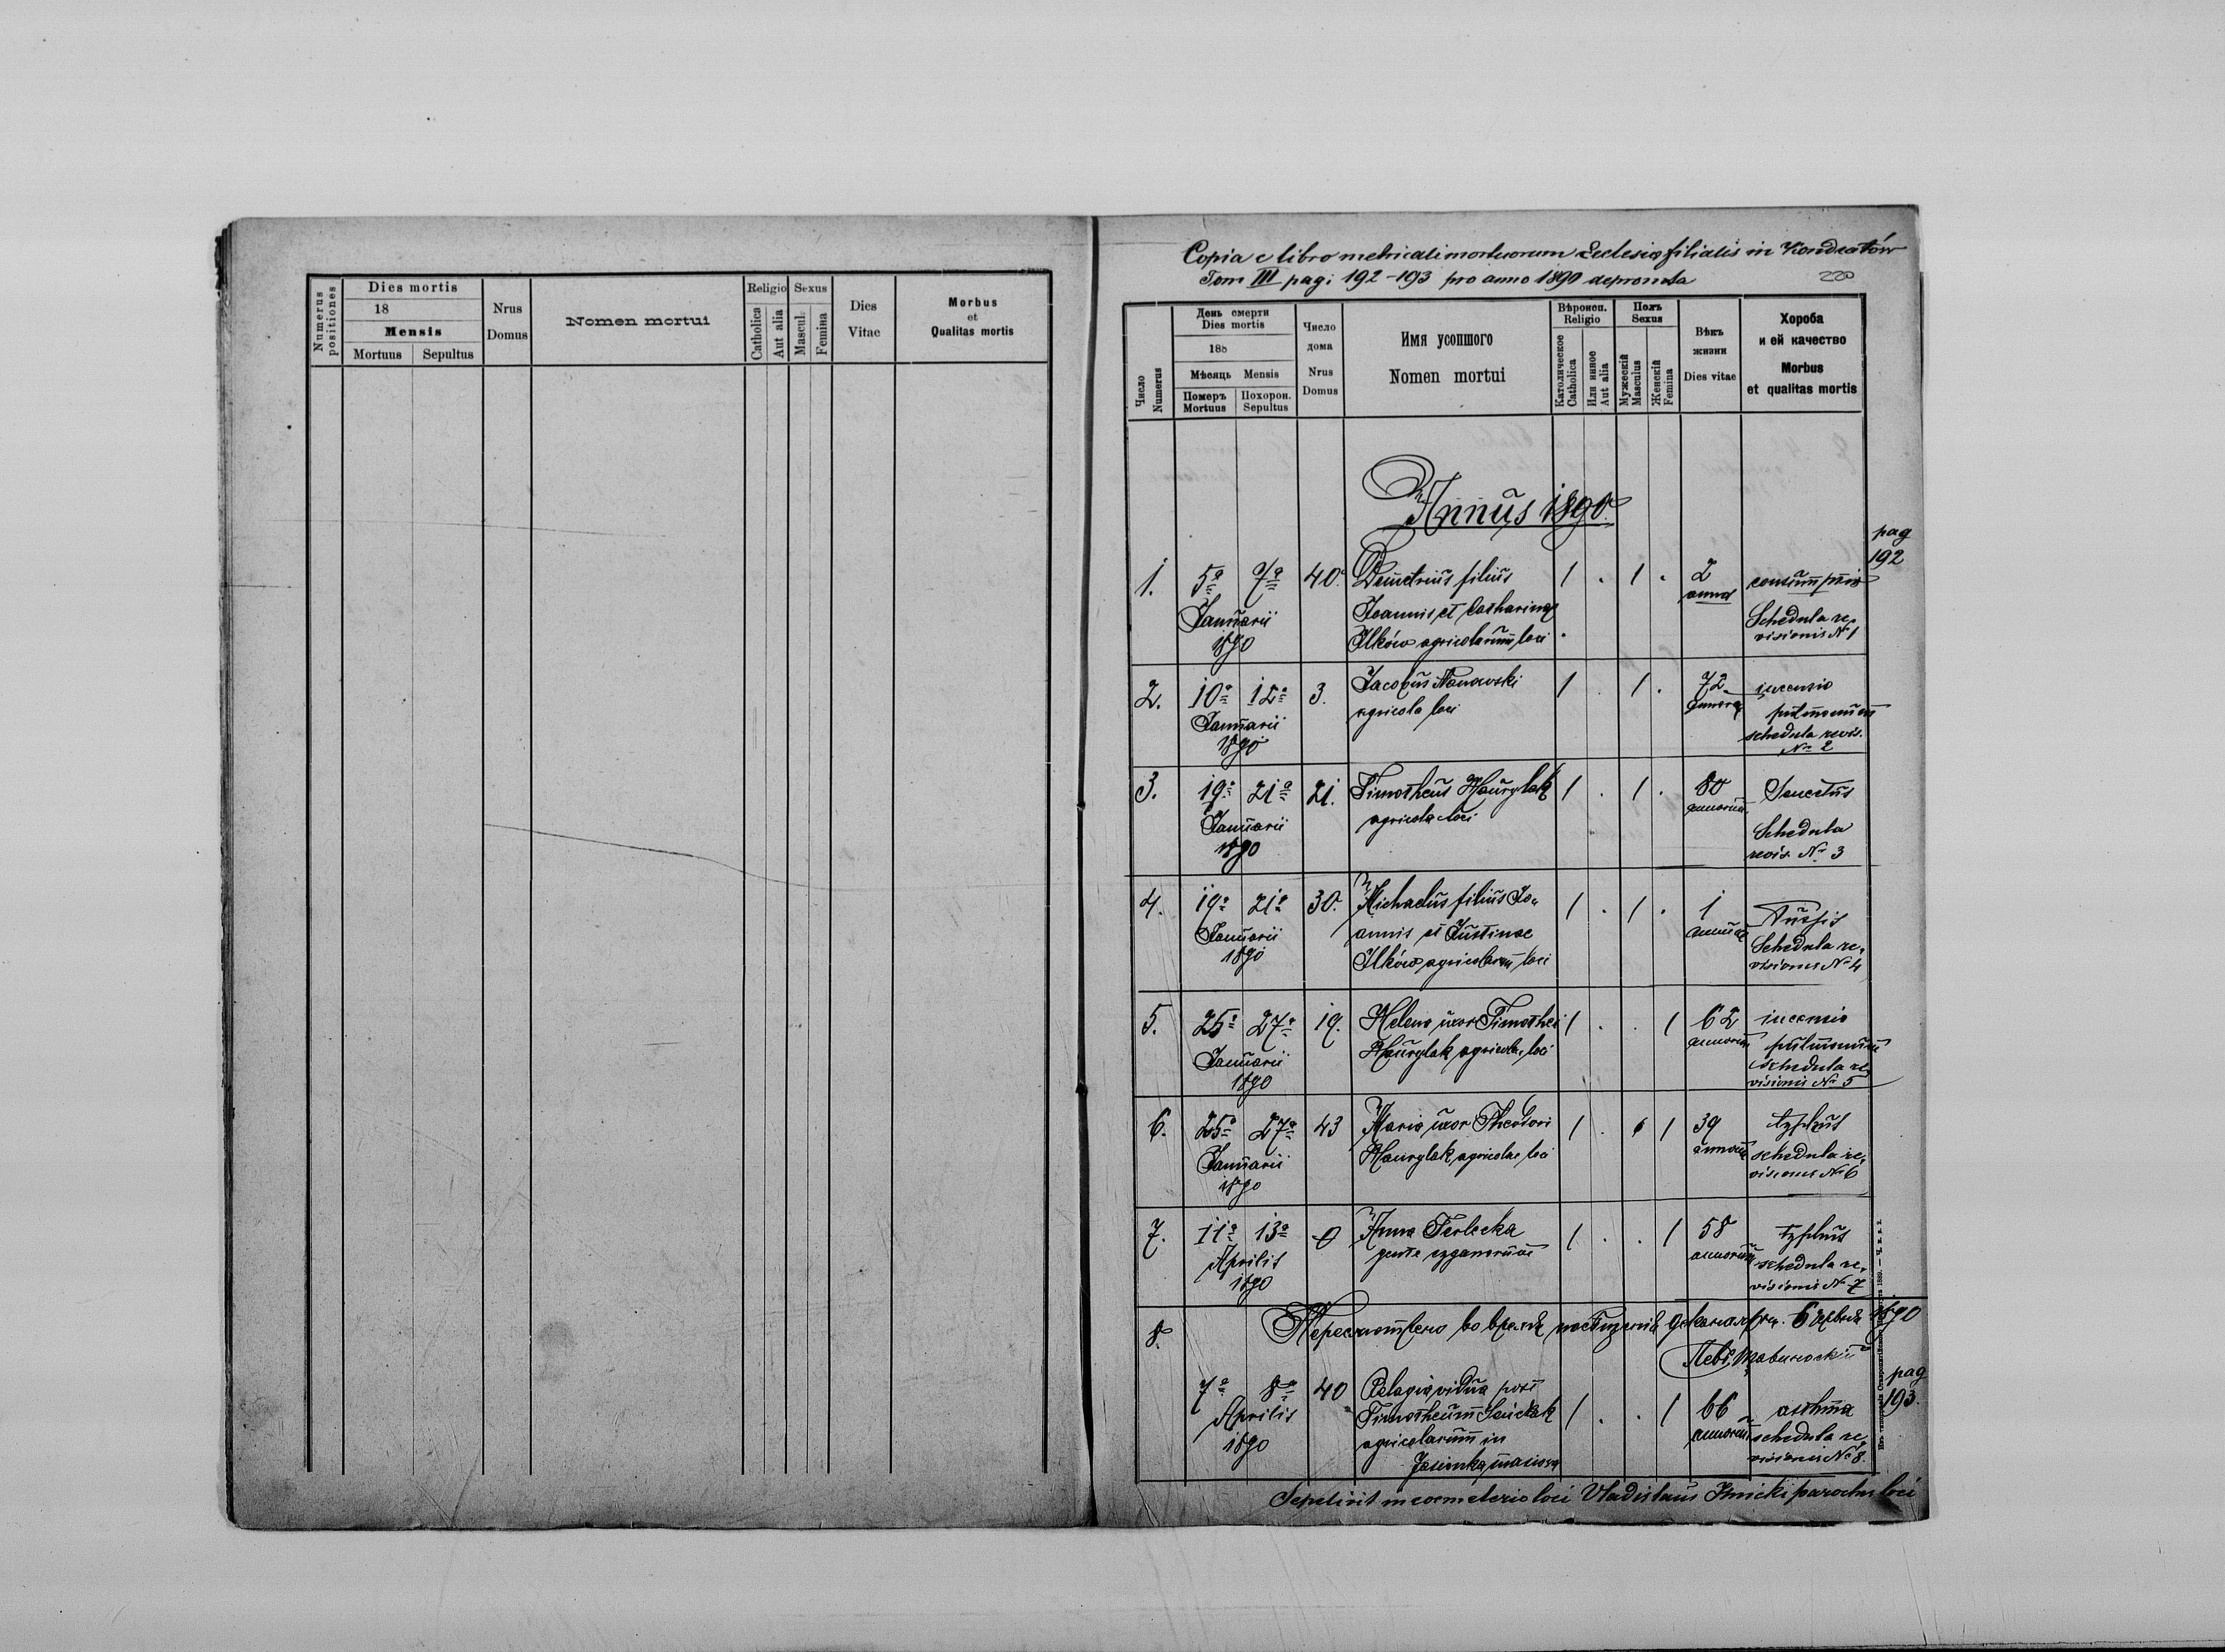 Numerus positiones
Dies mortis
18
Mensis
Mortuus Sepultus
Nrus Domus
Nomen mortui
Religio Sexus
Catholica
Aut alia
Mascul.
Femina
Dies Vitae
Morbus
et
Qualitas mortis
Copia e libro metricali mortuorum Ecclesiae filialis in Kondratów
Tom III pagi 192-193 pro anno 1890 depromta
220
Число Numerus
День смерти
Dies mortis
188
Мѣсяць Mensis
Померъ Mortuus
Похорон. Sepultus
Число дома
Nrus Domus
Имя усопшого
Nomen mortui
Вѣроисп. Religio
Католическое Catholica
Или инное Aut alia
Полъ Sexus
Мужескій Masculus
Женскій Femina
Вѣкъ жизни
Dies vitae
Хороба
и ей качество
Morbus
et qualitas mortis
Annus 1890.
pag
192
1. 5a 7a 40. Demetrius filius 1 . 1 . 2 consumptio
Januarii Joannis et Catharinae Schedula re-
1890 Ilków agricolarum loci visionis No 1
2. 10a 12a 3. Jacobus Nanowski 1 . 1 . 72 incensio
Januarii agricola loci pulmonum
1890 schedula revis.
No 2
3. 19a 21a 21. Timotheus Hawrylak 1 . 1 . 80 Senectus
annorum
Januarii agricola loci Schedula
1890 revis. No 3
4. 19a 21a 30. Michaelus filius Jo- 1 . 1 . 1 Tussis
Januarii annis et Justinae Schedula re-
1890 Ilków agricolarum loci visionis No 4
5. 25a 27a 19. Helena uxor Timothei 1 . . 1 62 incensio
annorum
Januarii Hawrylak agricolae loci pulmonum
1890 schedula re-
visionis No 5
6. 25a 27a 43 Maria uxor Theodori 1 . 1 39 typhus
annorum
Januarii Hawrylak agricolae loci schedula re-
1890 visionis No 6
7. 11a 13a 0 Anna Terlecka 1 . . 1 58 typhus
annorum
Aprilis gente cyganorum schedula re-
1890 visionis No 7
8. 6 1890
pag
193.
7a 8a 40 Pelagia vidua post 1 . . 1 66 asthma
annorum
Aprilis Timotheum schedula re-
1890 agricolarum in visionis No 8.
Jasionka
Sepelivit in coemeterio loci Vladislaus parochus loci